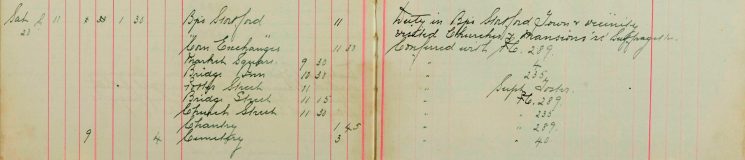 Sat 2 11 " 8 30 1 30 Bps Stortford 11 Duty in Bps Stortford Town & vicinity
23 visited Churches & Mansions re Suffragettes.
"Corn Exchange" 11 30 Conferred with P.C. 289.
Market Square 9 30 " " 4
Bridge Town 10 30 " " 235.
Potter Street 11 " Supt
Bridge Street 11 15 " P.C. 289.
Church Street 11 30 " " 235
Chantry 1 45 " " 289.
9 4 Cemetery 3 " " 40